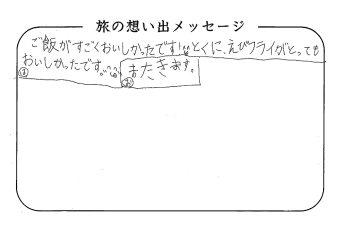 旅の想い出メッセージ
ご飯がすごくおいしかったです!!とくに、えびフライがとっても
おいしかったです。
またきます。